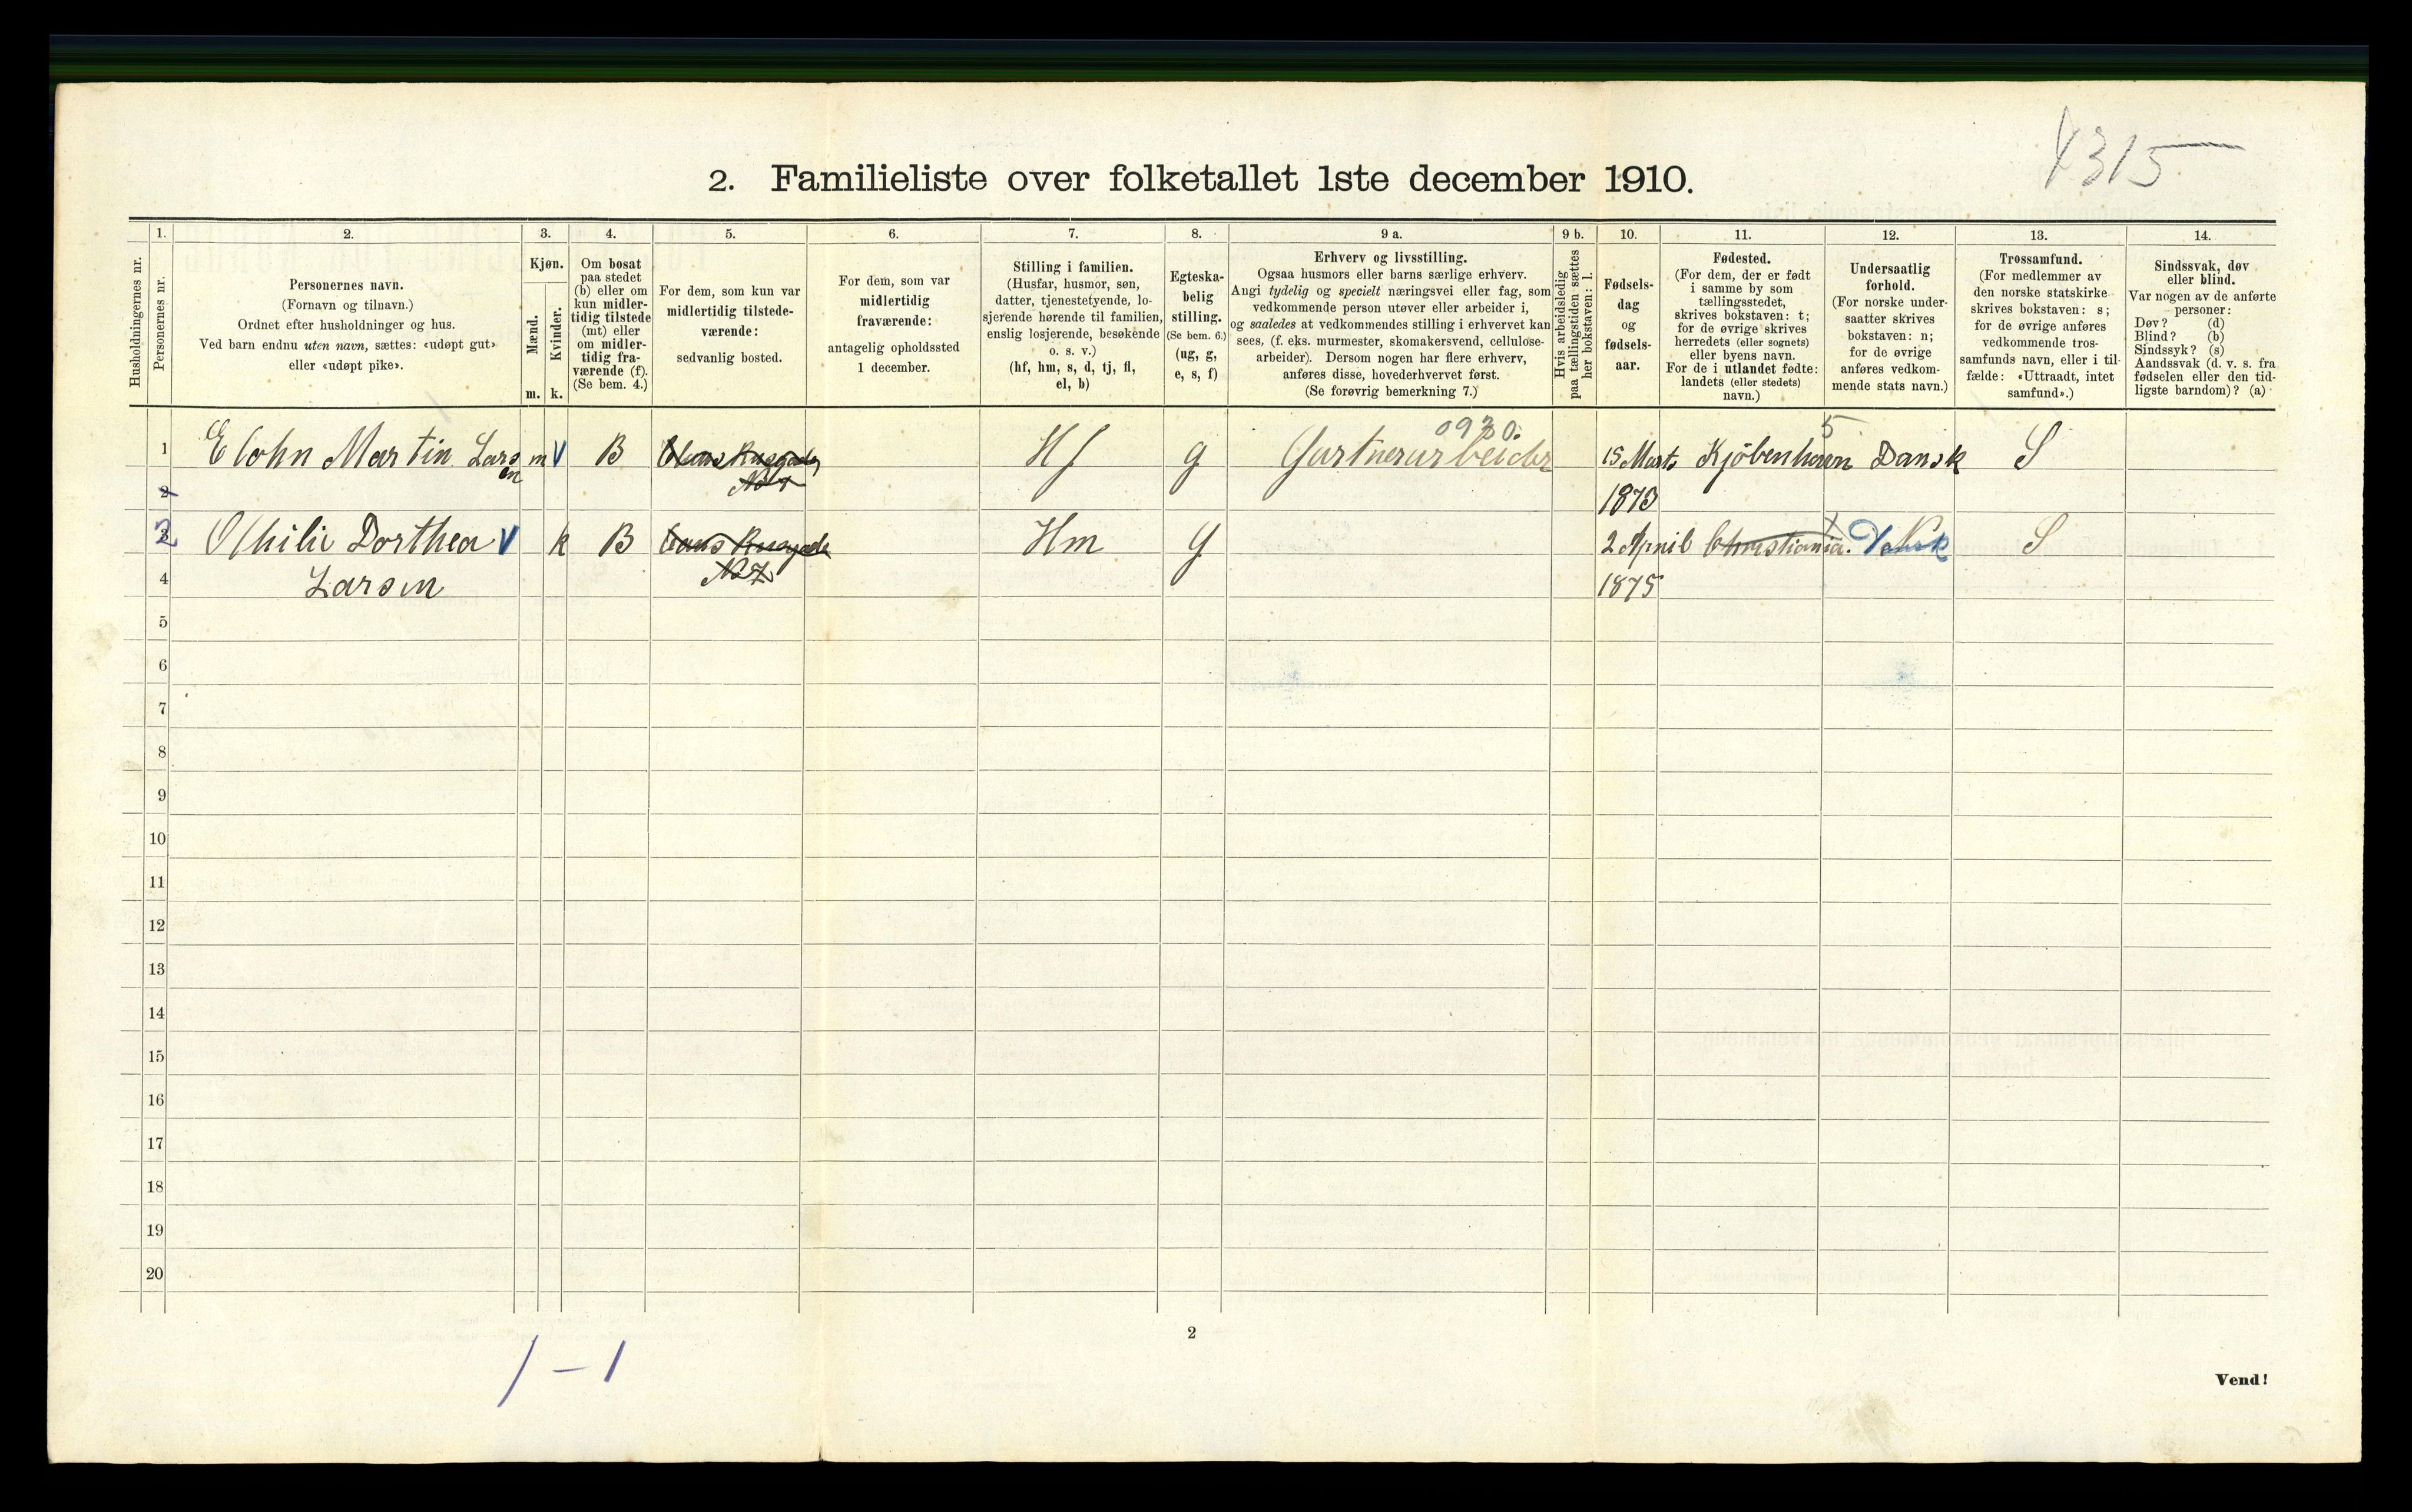 4315
2. Familieliste over folketallet 1ste december 1910.
1. 2. 3. 4. 5. 6. 7. 8. 9 a. 9 b. 10. 11. 12. 13. 14.
Husholdningernes nr.
Personernes nr.
Personernes navn.
(Fornavn og tilnavn.)
Ordnet efter husholdninger og hus.
Ved barn endnu uten navn, sættes: «udøpt gut»
eller «udøpt pike».
Kjøn.
Mænd.
Kvinder.
m. k.
Om bosat
paa stedet
(b) eller om
kun midler-
tidig tilstede
(mt) eller
om midler-
tidig fra-
værende (f).
(Se bem. 4.)
For dem, som kun var
midlertidig tilstede-
værende:
sedvanlig bosted.
For dem, som var
midlertidig
fraværende:
antagelig opholdssted
1 december.
Stilling i familien.
(Husfar, husmor, søn,
datter, tjenestetyende, lo-
sjerende hørende til familien,
enslig losjerende, besøkende
o. s. v.)
(hf, hm, s, d, tj, fl,
el, b)
Egteska-
belig
stilling.
(Se bem. 6.)
(ug, g,
e, s, f)
Erhverv og livsstilling.
Ogsaa husmors eller barns særlige erhverv.
Angi tydelig og specielt næringsvei eller fag, som
vedkommende person utøver eller arbeider i,
og saaledes at vedkommendes stilling i erhvervet kan
sees, (f. eks. murmester, skomakersvend, cellulose-
arbeider). Dersom nogen har flere erhverv,
anføres disse, hovederhvervet først.
(Se forøvrig bemerkning 7.)
Hvis arbeidsledig
paa tællingstiden sættes
her bokstaven: l.
Fødsels-
dag
og
fødsels-
aar.
Fødested.
(For dem, der er født
i samme by som
tællingsstedet,
skrives bokstaven: t;
for de øvrige skrives
herredets (eller sognets)
eller byens navn.
For de i utlandet fødte:
landets (eller stedets)
navn.)
Undersaatlig
forhold.
(For norske under-
saatter skrives
bokstaven: n;
for de øvrige
anføres vedkom-
mende stats navn.)
Trossamfund.
(For medlemmer av
den norske statskirke
skrives bokstaven: s;
for de øvrige anføres
vedkommende tros-
samfunds navn, eller i til-
fælde: «Uttraadt, intet
samfund».)
Sindssvak, døv
eller blind.
Var nogen av de anførte
personer:
Døv? (d)
Blind? (b)
Sindssyk? (s)
Aandssvak (d. v. s. fra
fødselen eller den tid-
ligste barndom)? (a)
0930. 5
1 Martin Larsen m V B Hf g Gartnerarbeider 15 Marts Kjöbenhavn Dansk S
2 No 7 1873
3 2 Othilie Dorthea V k B Hm g 2 April Christiania. Dansk S
4 Larsen No 7 1875
5
6
7
8
9
10
11
12
13
14
15
16
17
18
19
20
1 - 1
2
Vend!